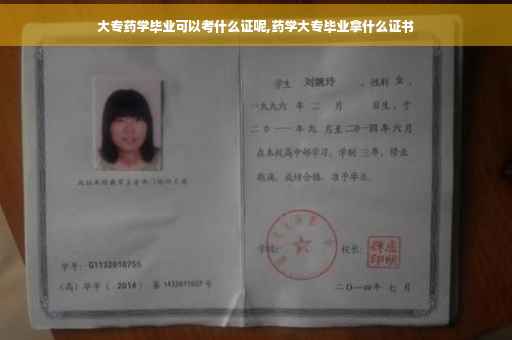 大专药学毕业可以考什么证呢,药学大专毕业拿什么证书
学生 刘婉玲 ,性别 女 ,
一九九六 年 二 月 日生,于
二０一一 年 九 月至 二０一四 年 六 月
在本校高中部学习,学制 三 年,修业
期满,成绩合格,准予毕业。
学校: 校长:
学号: G1132010755
(高)毕字( 2014 )第 1432011027 号
二〇一四 年 七 月